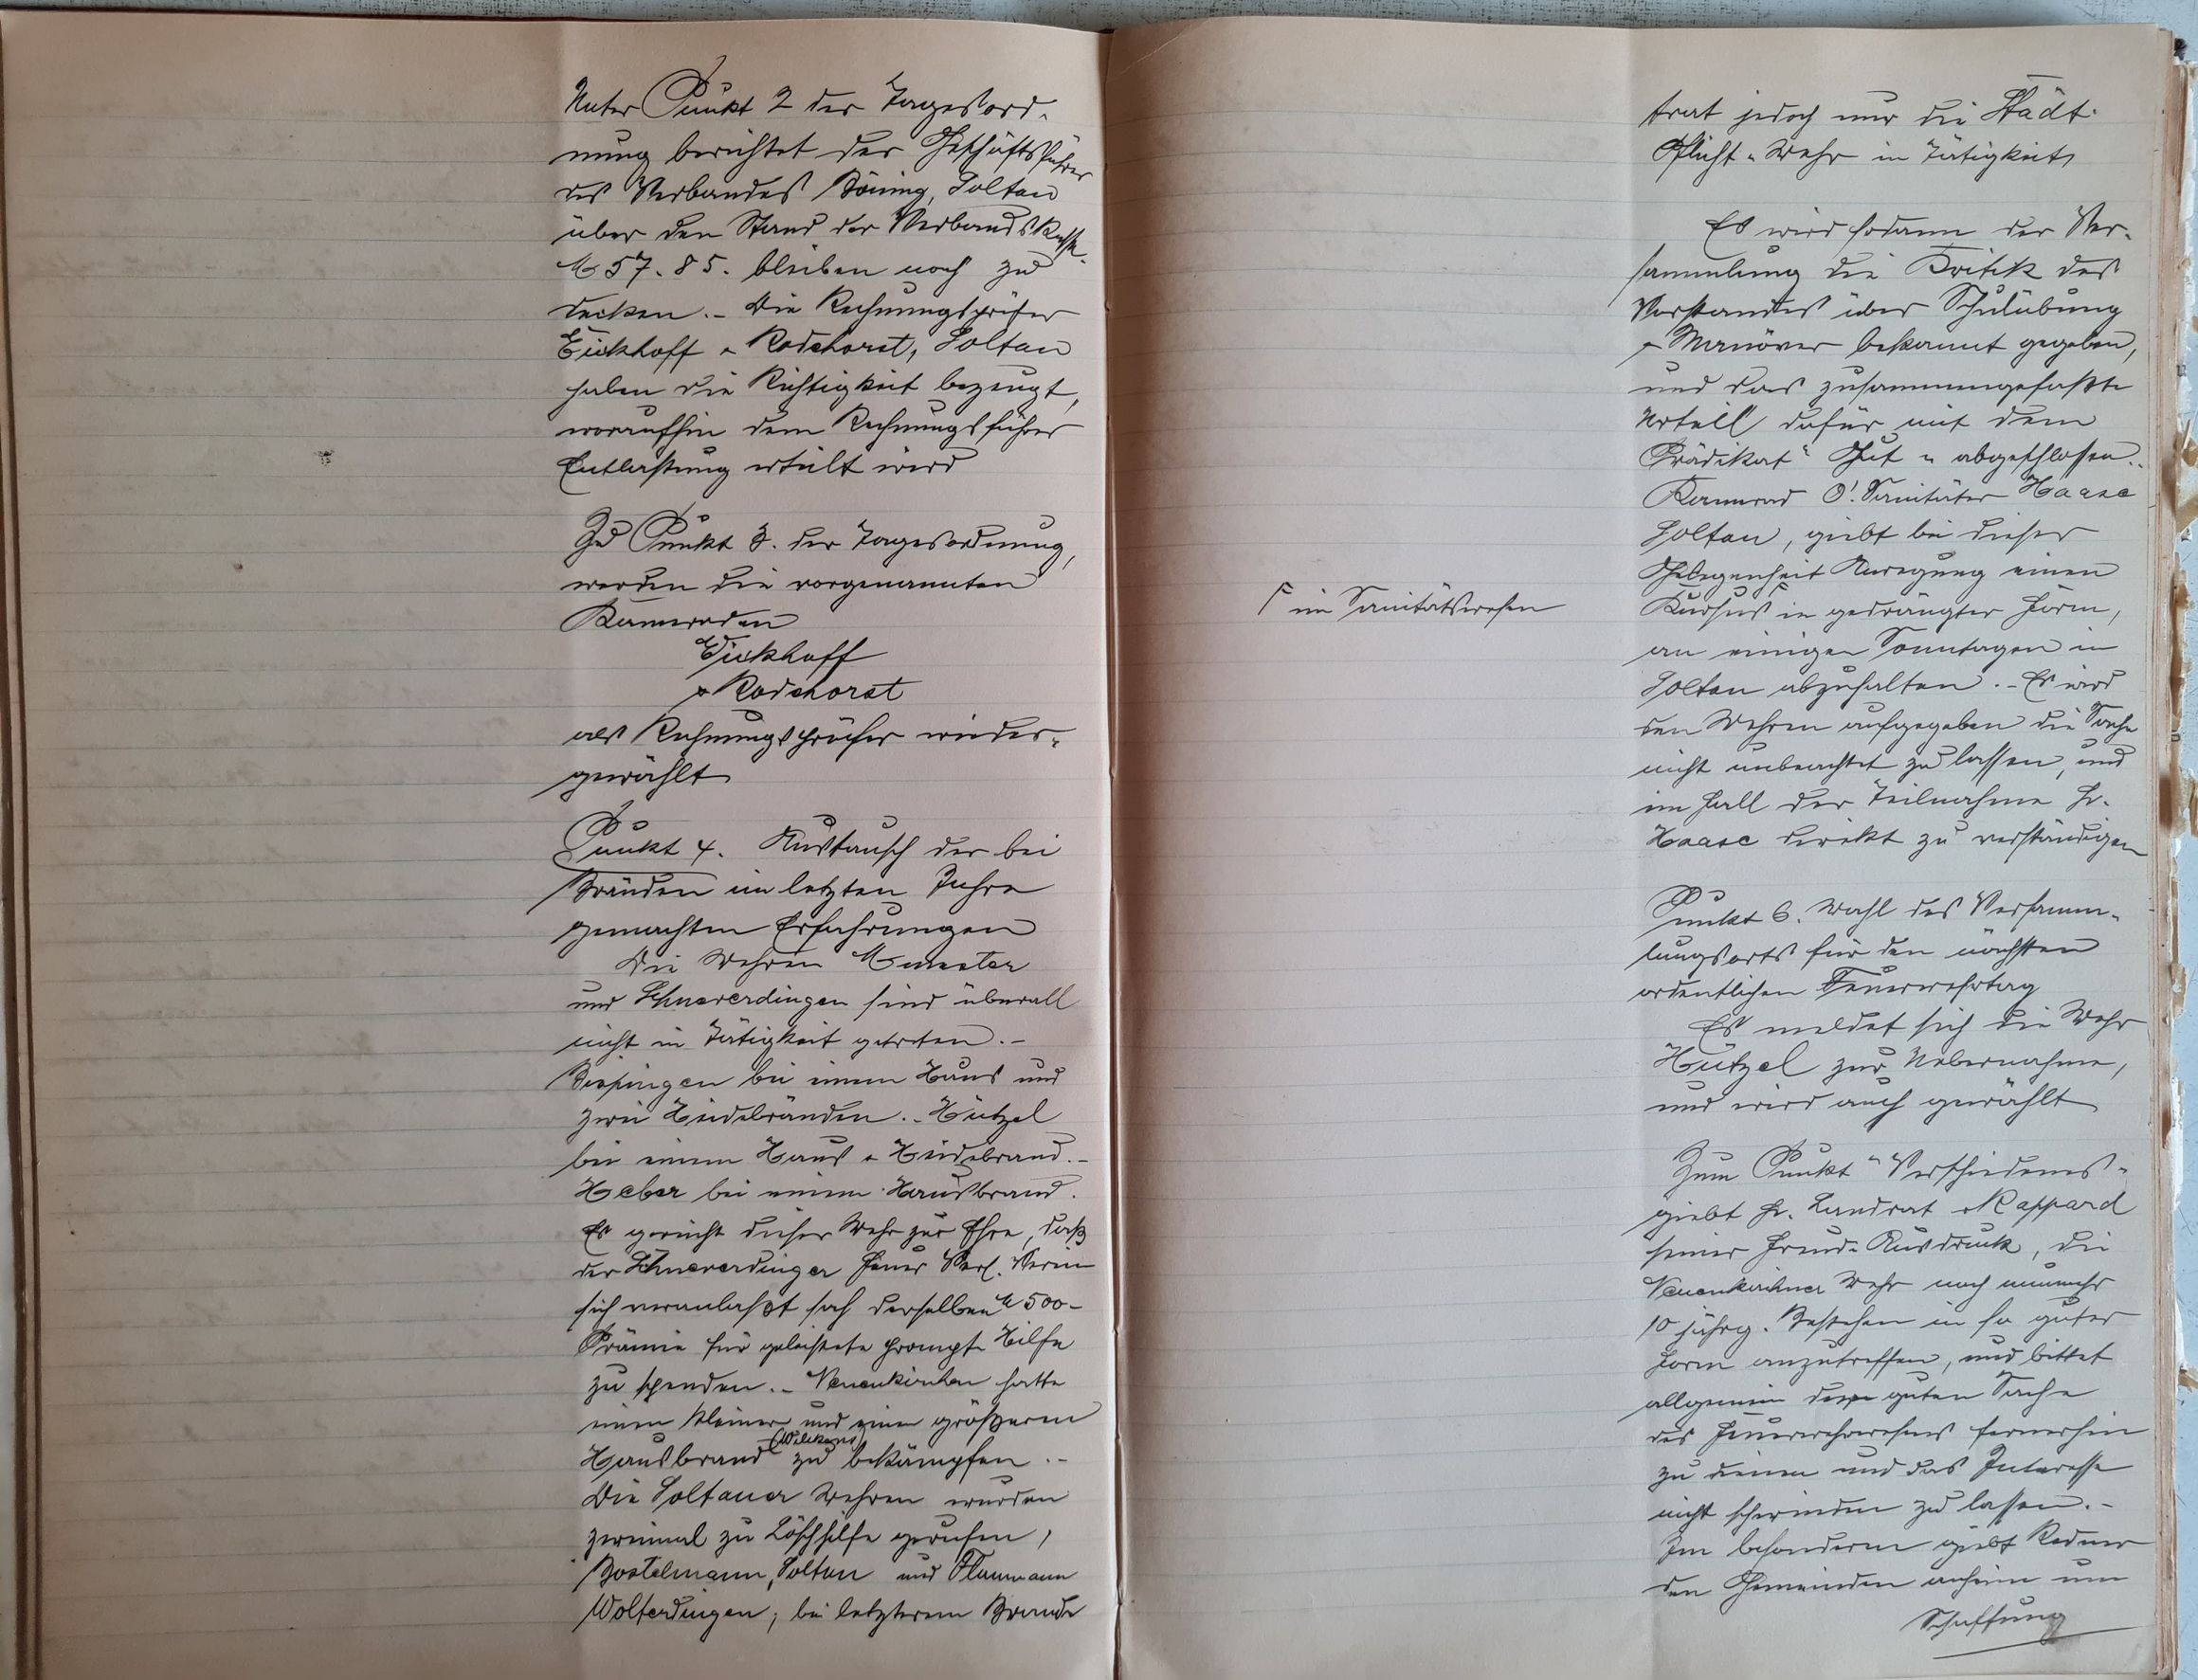 Unter Punkt 2 der Tagesord-
nung berichtet der Geschäftsführer
des Verbandes Söning, Soltau
über den Stand der Verbandskasse.
M 57.85. bleiben noch zu
decken. – Die Rechnungsprüfer
Eickhoff & Rodehorst, Soltau
haben die Richtigkeit bezeugt,
woraufhin dem Rechnungsführer
Entlastung erteilt wird
Zu Punkt 3. der Tagesordnung,
werden die vorgenannten
Kameraden
Eickhoff
& Rodehorst
als Rechnungsprüfer wieder-
gewählt
Punkt 4. Austausch der bei
Bränden im letzten Jahre
gemachten Erfahrungen
Die Wehren Munster
und Schneverdingen sind überall
nicht in Tätigkeit getreten. –
Bispingen bei einem Haus und
zwei Heidebränden. – Hützel
bei einem Haus & Heidebrand. –
Heber bei einem Hausbrand.
Es gereicht dieser Wehr zur Ehre, daß
der Schneverdinger Feuer Vers. Verein
sich veranlaßt sah derselben M 500–
Prämie für geleistete prompte Hilfe
zu spenden. – Neuenkirchen hatte
einen kleinen und einen größeren
Hausbrand (Wilkens) zu bekämpfen. –
Die Soltauer Wehren wurden
zweimal zu Löschhilfe gerufen,
Bostelmann, Soltau und
Wolterdingen; bei letzterem Brande
trat jedoch nur die Städt.
Pflicht-Wehr in Tätigkeit
Es wird sodann der Ver-
sammlung die Kritik des
Vorstandes über Schulübung
& Manöver bekannt gegeben,
und das zusammengefaßte
Urteil dafür mit dem
Prädikat "Gut" abgeschlossen.
Kamerad O'. Sanitäter Haase
Soltau, giebt bei dieser
Gelegenheit Anregung einen
Kursus ⌈ in gedrängter Form,
⌈ im Sanitätswesen
an einigen Sonntagen in
Soltau abzuhalten. – Es wird
den Wehren aufgegeben die Sache
nicht unbeachtet zu lassen, und
im Fall der Teilnahme Hr.
Haase direkt zu verständigen
Punkt 6. Wahl des Versamm-
lungsorts für den nächsten
ordentlichen Feuerwehrtag
Es meldet sich die Wehr
Hützel zur Uebernahme,
und wird auch gewählt
Zum Punkt "Verschiedenes"
giebt Hr. Landrat v Rappard
seiner Freude Ausdruck, die
Neuenkirchner Wehr nach nunmehr
10 jährg. Bestehen in so guter
Form anzutreffen, und bittet
allgemein der guten Sache
des Feuerwehrwesens fernerhin
zu dienen und das Interesse
nicht schwinden zu lassen. –
Im besonderen giebt Redner
den Gemeinden anheim um
Schaffung